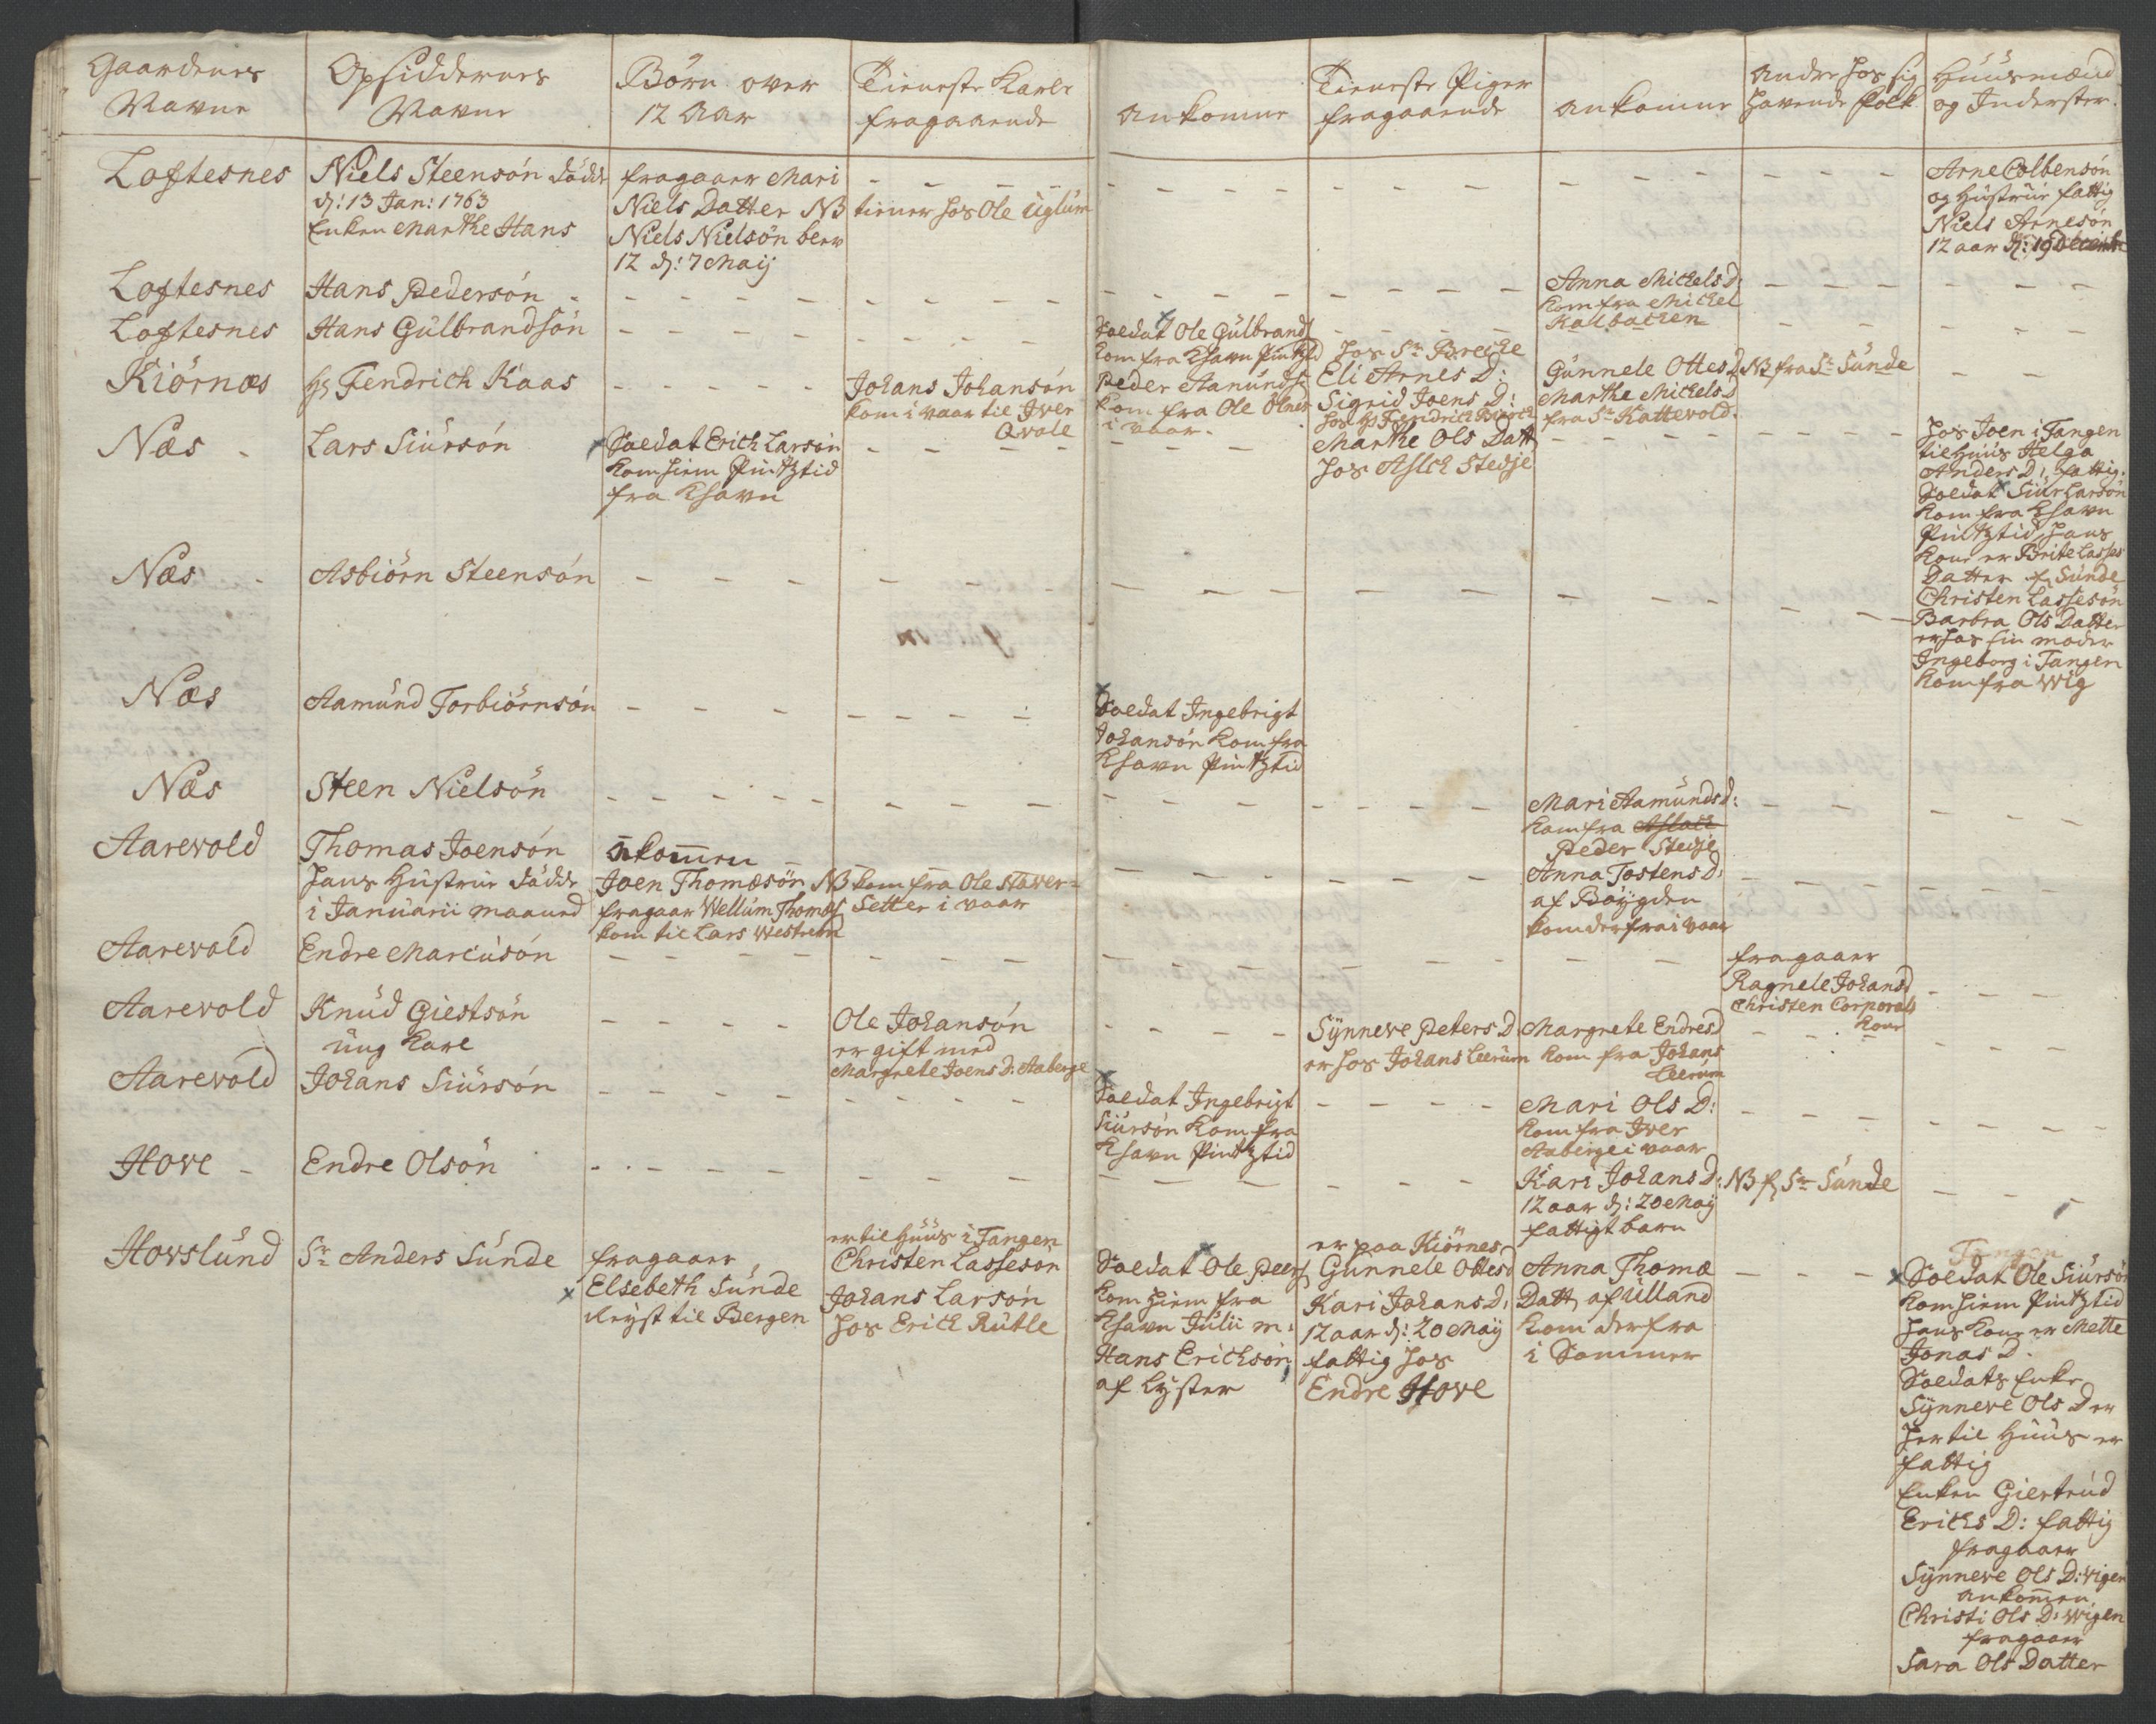 Gaardenes
Navne
Opsiddernes
Navne
Börn over
12 Aar
Tieneste Karle
fragaaende
ankomne
Tieneste Piger
fragaaende
ankomne
Andre hos sig
havende Folk
Huusmænd
og Inderster
Loftesnes
Niels Steensön döde
d: 13 Jan: 1763
Enken Marthe Hans
fragaaer Mari
Niels Datter NB tiener hos Ole Uglum
Niels Nielsön blev
12 d: 7 Maij
Arne Colbensön
og Hustrue fattig
Niels Arnesön
12 aar d: 19 Decembr
Loftesnes
Hans Pedersön
Anna Michels D:
kom fra Michel
Kalbachen
Loftesnes
Hans Gulbrandsön
Soldat Ole Gulbrands
kom fra Khavn Pintztid
Kiörnæs
Hr Fendrich Kaas
Johans Johansön
kom i vaar til Iver
Qvale
Peder Aamunds
kom fra Ole Ölner
i vaar.
hos Sr Breche
Eli Arnes D:
Sigrid Joens D:
hos Hr Fendrich
Gunnele Ottes D NB fra Sr Sunde
Marthe Michels D
fra Sr Kattevold.
Næs
Lars Siursön
Soldat Erich Larsön
kom hiem Pintztid
fra Khavn
Marthe Ols Datt
hos Aslch Stedje
hos Joen i Tangen
til Huus Helga
Anders D: fattig.
Soldat Siur Larsön
kom fra Khavn
Pintztid hans
kone er Brite Lasses
Datter f Sunde
Christen Lassesön
Næs
Asbiörn Steensön
Barbra Ols Datter
er hos sin moder
Ingeborg i Tangen
kom fra Wig
Næs
Aamund Torbiörnsön
Soldat Ingebrigt
Johansön kom fra
Khavn Pintztid
Næs
Steen Nielsön
Mari Aamunds D:
kom fra Aslack
Peder Stedje
Aarevold
Thomas Joensön
hans Hustrue döde
i Januarii maaned
ankommen
Joen Thomæsön NB kom fra Ole Stover=
fragaar Wellum Thomæs setter i vaar
kom til Lars Westrem
Anna Tostens D:
af Böygden
kom derfra i vaar
Aarevold
Endre Marcusön
fragaaer
Ragnele Johans D
Christen Corporals
kone
Aarevold
Knud Giestsön
ung karl
Ole Johansön
er gift med
Margrete Joens D: Aaberge
Synneve Peters D
er hos Johans Leerum
Margrete Endres D
kom fra Johans
Leerum
Aarevold
Johans Siursön
Soldat Ingebrigt
Siursön kom fra
Khavn Pintztid
Mari Ols D:
kom fra Iver
Aaberge i vaar
Hove
Endre Olsön
Kari Johans D: NB f Sr Sunde
12 aar d: 20 Maij
fattigt barn
Hovslund
Sr Anders Sunde
fragaaer
Elsebeth Sunde
Reyst til Bergen
er til Huus i Tangen
Christen Lassesön
Johans Larsön
hos Erich Rutle
Soldat Ole Peers
kom hiem fra
Khavn Julii m:
Hans Erichsön
af Lyster
er paa Kiörnes
Gunnele Ottes D
Kari Johans D:
12 aar d: 20 Maij
fattig hos
Endre Hove
Anna Thomæ
Datt af Ulland
kom derfra
i Sommer
Tangen
Soldat Ole Siursön
kom hiem Pintztid
hans kone er Mette
Jonas D.
Soldats Enke
Synneve Ols D er
her til Huus er
fattig
Enken Giertrud
Erichs D: fattig
fragaaer
Synneve Ols D: Vigen
ankommen
Christi Ols D: Wigen
fragaaer
Sara Ols Datter